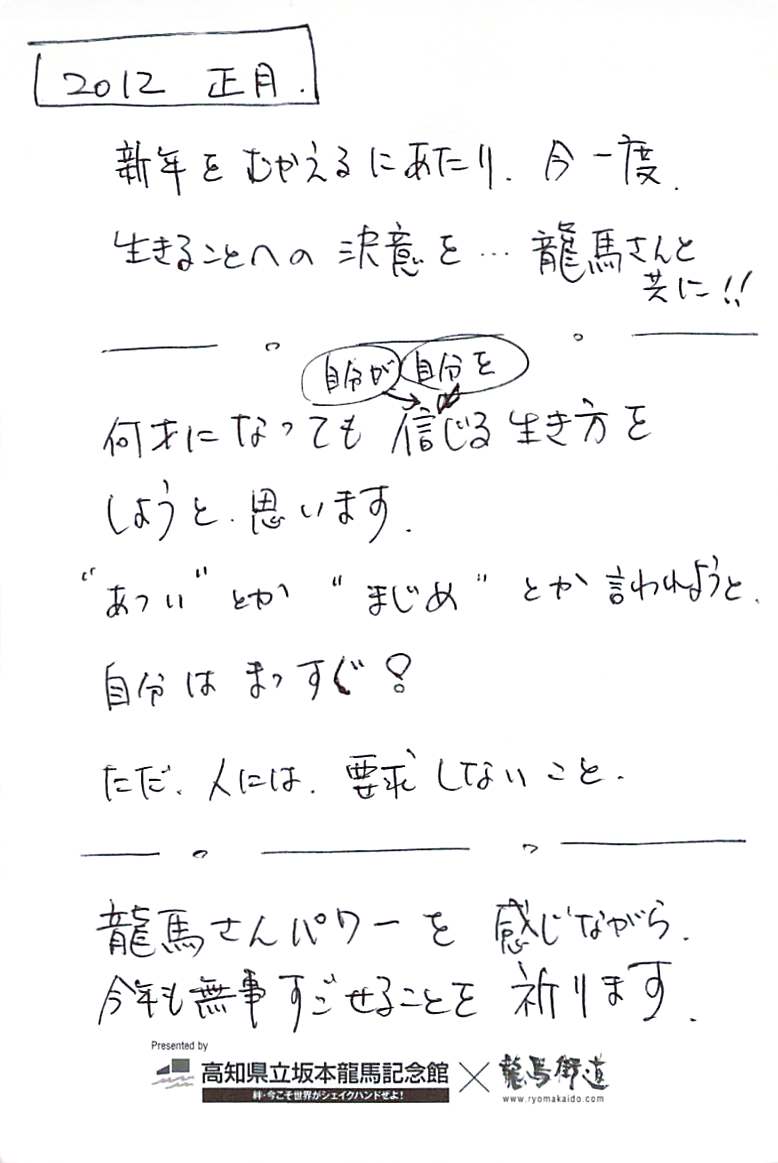 2012 正月.
新年をむかえるにあたり、今一度、
生きることへの決意を…龍馬さんと
共に!!
自分が 自分を
何才になっても信じる生き方を
しようと、思います.
“あつい”とか“まじめ”とか言われようと、
自分はまっすぐ!
ただ、人には、要求しないこと.
龍馬さんパワーを感じながら、
今年も無事すごせることを祈ります.
Presented by
高知県立坂本龍馬記念館×龍馬街道
絆・今こそ世界がシェイクハンドぜよ!
www.ryomakaido.com